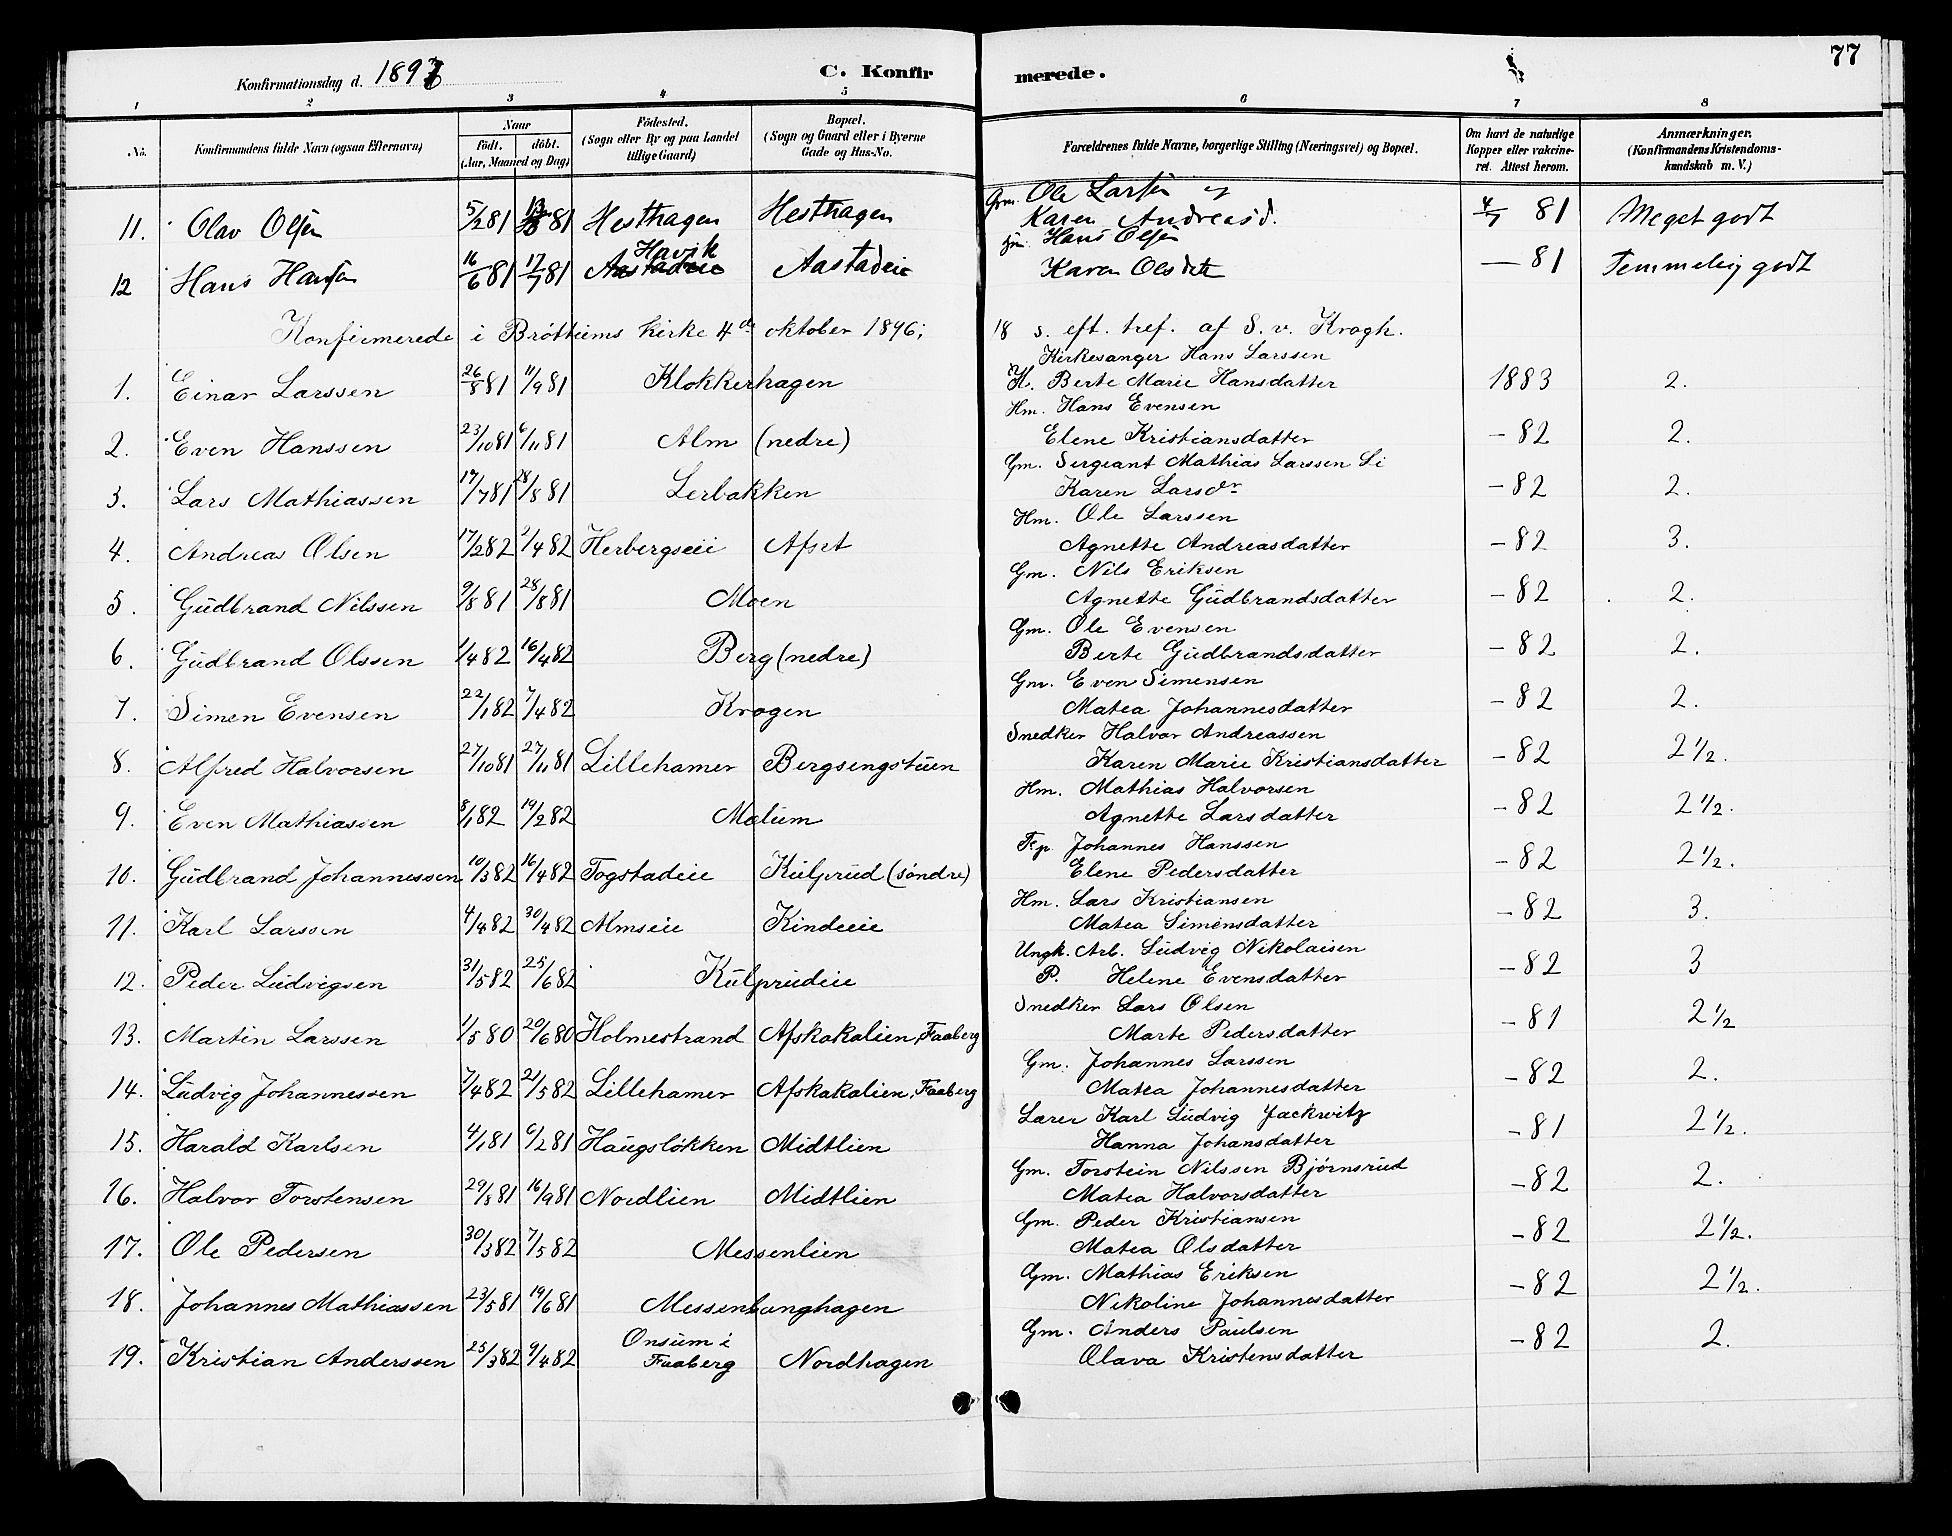 77
Konfirmationsdag d. 1896
C. Konfirmerede.
1 2 3 4 5 6 7 8
No. Konfirmandens fulde Navn (ogsaa Efternavn) Naar født. døbt. (Aar, Maaned og Dag) Fødested. (Sogn eller By og paa Landet tillige Gaard) Bopæl. (Sogn og Gaard eller i Byerne Gade og Hus-No. Forældrenes fulde Navne, borgerlige Stilling (Næringsvei) og Bopæl. Om havt de naturlige Kopper eller vakcineret. Attest herom. Anmærkninger. (Konfirmandens Kristendomskundskab m. V.)
11. Olav Olsen 5/2 81 81 Hesthagen Hesthagen Gm. Ole Larsen og Karen Andreasd. 4/7 81 Meget godt
12 Hans Hansen 16/6 81 17/7 81 Havik Aastadeie Aastadeie Gm. Hans Olsen Karen Olsdtr — 81 Temmelig godt
Konfirmerede i Brøttums kirke 4de oktober 1896; 18 s. eft. tref. af S. v. Krogh.
1. Einar Larssen 26/8 81 11/9 81 Klokkerhagen Kirkesanger Hans Larssen K. Berte Marie Hansdatter 1883 2.
2. Even Hanssen 23/10 81 6/11 81 Alm (nedre) Hm. Hans Evensen Elene Kristiansdatter - 82 2.
3. Lars Mathiassen 17/7 81 28/8 81 Lerbakken Gm. Sergeant Mathias Larssen Li Karen Larsdr - 82 2.
4. Andreas Olsen 17/2 82 2/4 82 Herbergseie Afset Hm. Ole Larssen Agnette Andreasdatter - 82 3.
5. Gudbrand Nilssen 9/8 81 28/8 81 Moen Gm. Nils Eriksen Agnette Gudbrandsdatter - 82 2.
6. Gudbrand Olssen 1/4 82 16/4 82 Berg (nedre) Gm. Ole Evensen Berte Gudbrandsdatter - 82 2.
7. Simen Evensen 22/1 82 7/4 82 Krogen Gm. Even Simensen Matea Johannesdatter - 82 2.
8. Alfred Halvorsen 27/10 81 27/11 81 Lillehamer Bergsengstuen Snedker Halvor Andreassen Karen Marie Kristiansdatter - 82 2 1/2.
9. Even Mathiassen 8/1 82 19/2 82 Malum Hm. Mathias Halvorsen Agnette Larsdatter - 82 2 1/2.
10. Gudbrand Johannessen 10/3 82 16/4 82 Togstadeie Kulprud (søndre) Fp. Johannes Hanssen Elene Pedersdatter - 82 2 1/2.
11. Karl Larssen 4/4 82 30/4 82 Almseie Kindeeie Hm. Lars Kristiansen Matea Simensdatter - 82 3.
12. Peder Ludvigsen 31/5 82 25/6 82 Kulprudeie Ungk. Arb. Ludvig Nikolaisen P. Helene Evensdatter - 82 3
13. Martin Larssen 1/5 80 20/6 80 Holmestrand Afskakalien, Faaberg Snedker Lars Olsen Marte Pedersdatter - 81 2 1/2
14. Ludvig Johannessen 7/4 82 21/5 82 Lillehamer Afskakalien, Faaberg Gm. Johannes Larssen Matea Johannesdatter - 82 2.
15. Harald Karlsen 4/1 81 6/2 81 Haugsløkken Midtlien Lærer Karl Ludvig Jackwitz Hanna Johansdatter - 81 2 1/2.
16. Halvor Torstensen 29/8 81 16/9 81 Nordlien Midtlien Gm. Torstein Nilssen Bjørnsrud Matea Halvorsdatter - 82 2.
17. Ole Pedersen 30/3 82 7/5 82 Messenlien Gm. Peder Kristiansen Matea Olsdatter - 82 2 1/2.
18. Johannes Mathiassen 23/5 81 19/6 81 Messenbanghagen Gm. Mathias Eriksen Nikoline Johannesdatter - 82 2 1/2.
19. Kristian Anderssen 25/3 82 9/4 82 Onsum i Faaberg Nordhagen Gm. Anders Paulsen Olava Kristensdatter - 82 2.